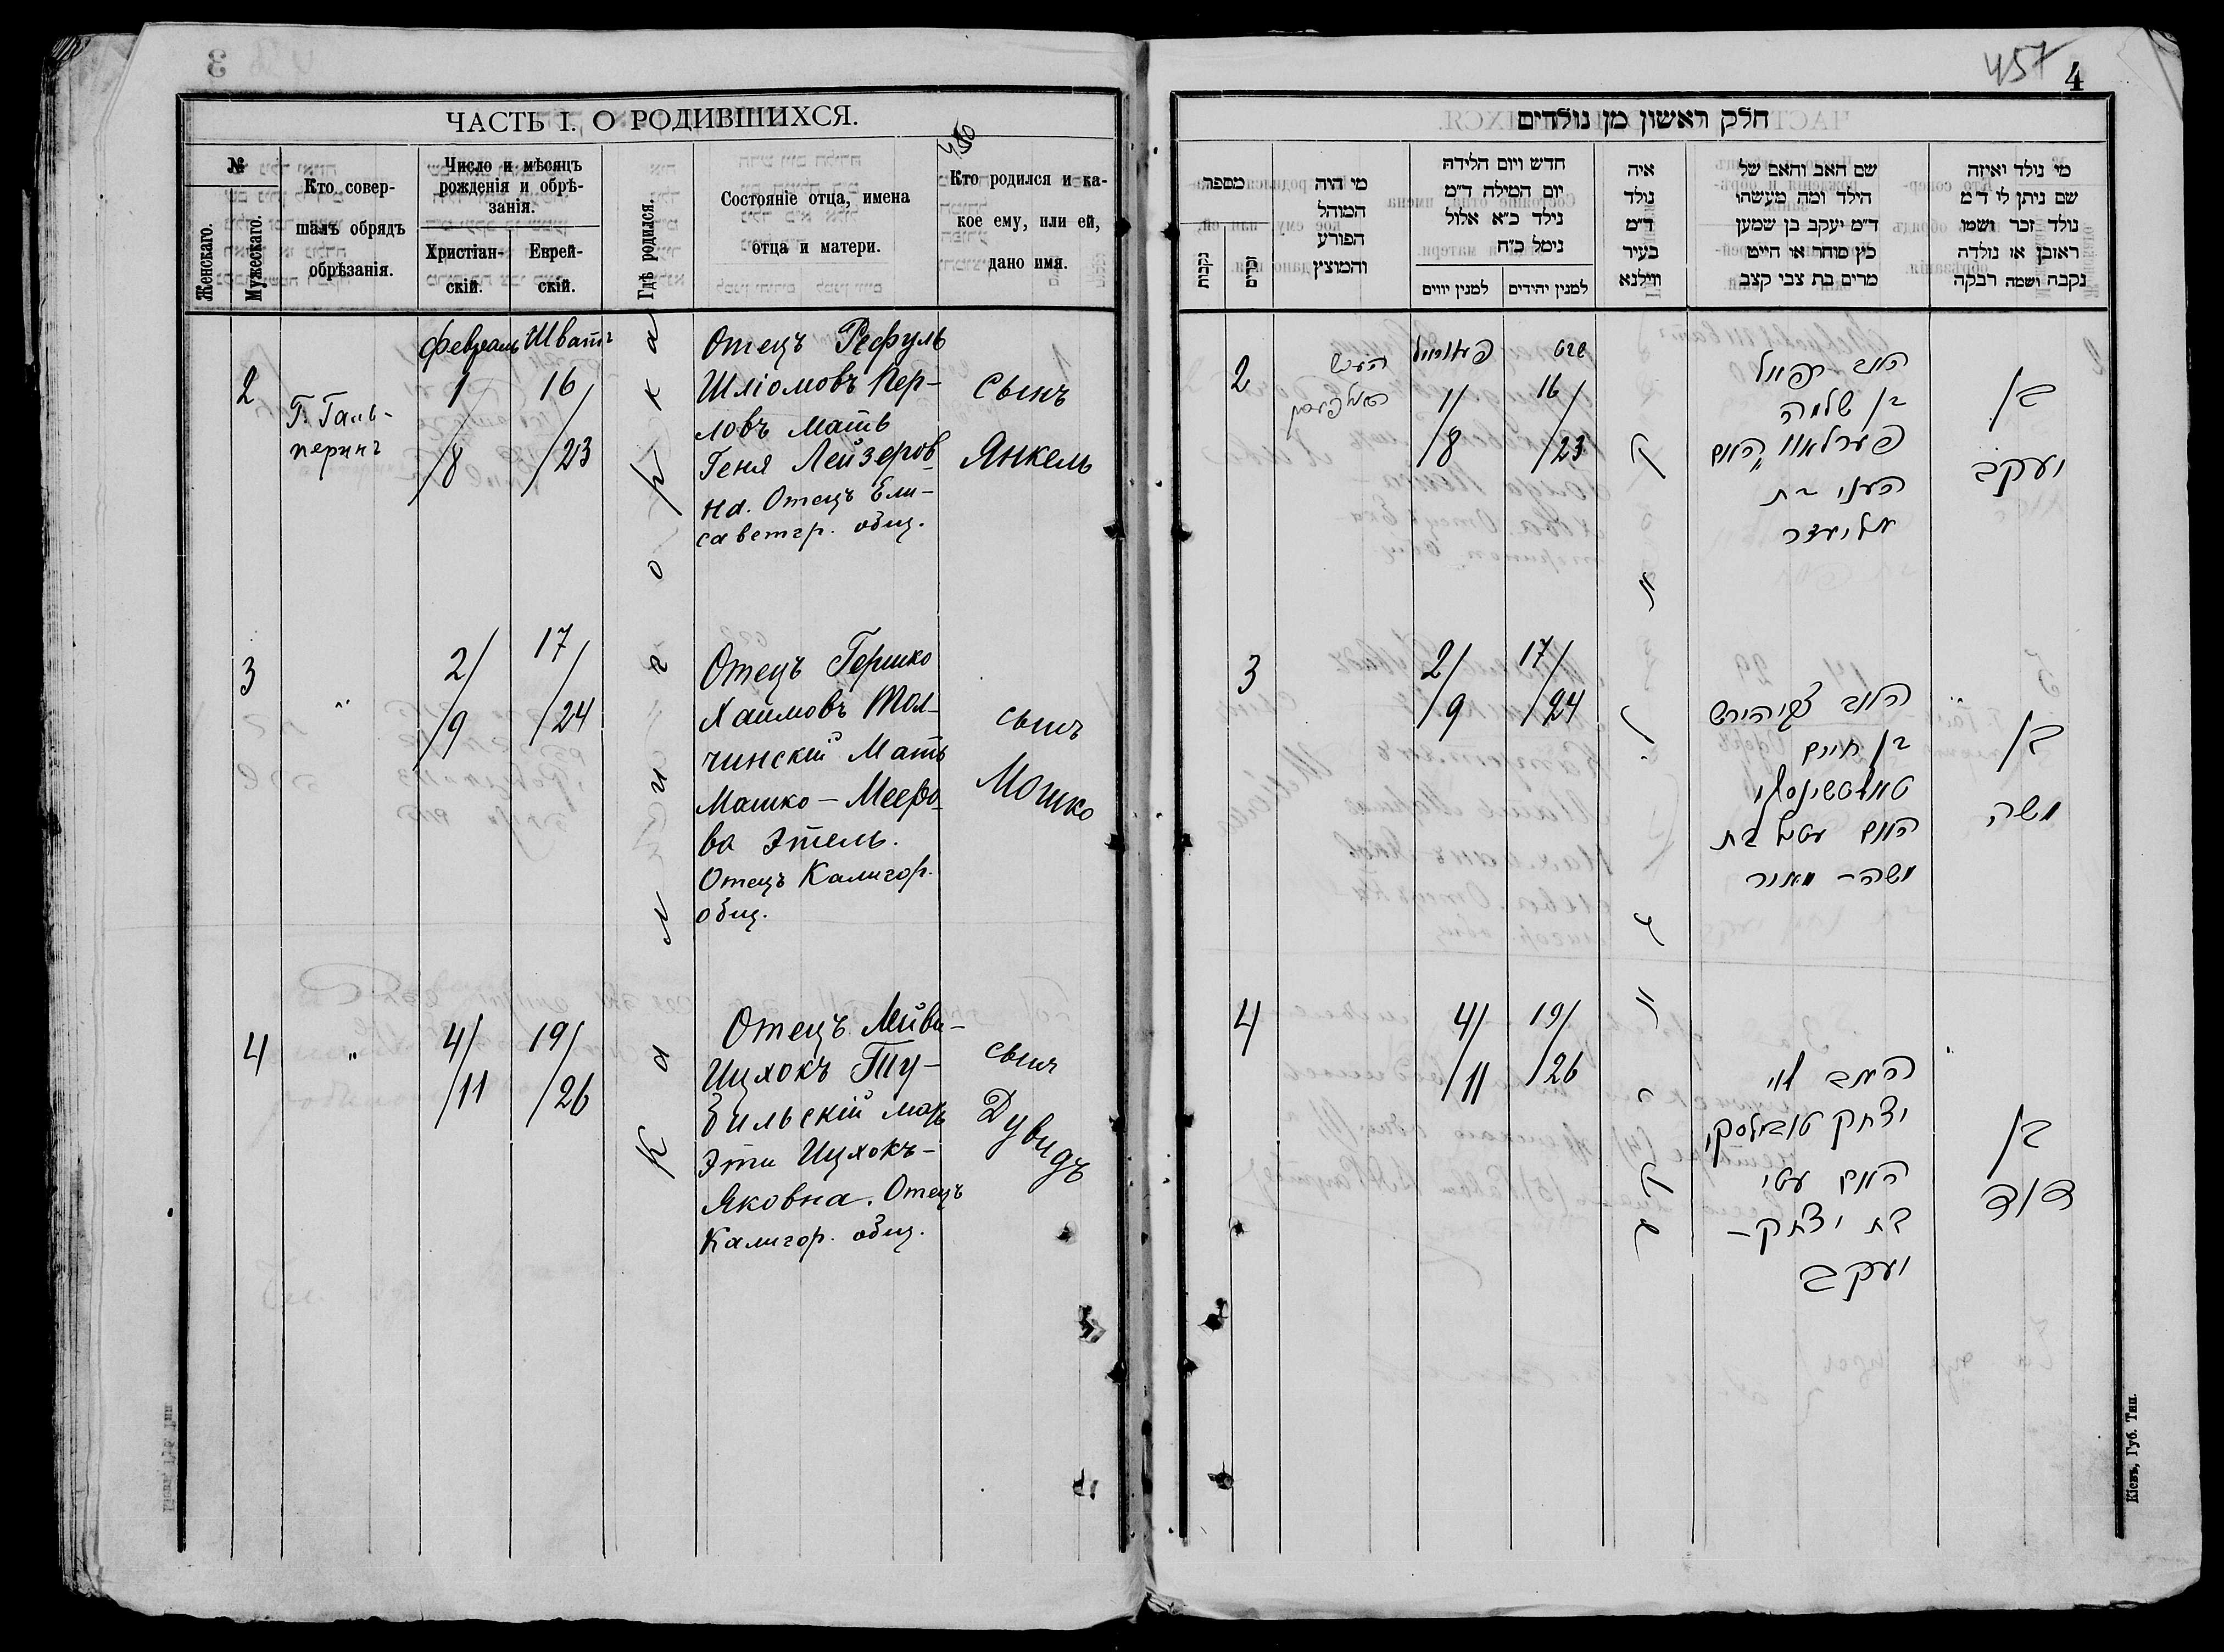 3
ЧАСТЬ I. О РОДИВШИХСЯ.
№
Женскаго.
Мужескаго.
Кто совер-
шалъ обрядъ
обрѣзанія.
Число и мѣсяцъ
рожденія и обрѣ-
занія.
Христіан-
скій.
Еврей-
скій.
Гдѣ родился.
Состояніе отца, имена
отца и матери.
Кто родился и ка-
кое ему, или ей,
дано имя.
февраль Шватъ
2
Г. Галь-
перинъ
1/8
16/23
Отецъ Рефуль
Шліомовъ Пер-
ловъ мать
Геня Лейзеров-
на. Отецъ Ели-
саветгр. общ.
Сынъ
Янкель
3
"
2/9
17/24
Отецъ Гершко
Хаимовъ Тол-
чинскій Мать
Машко-Мееро-
ва Этель.
Отецъ Калигор.
общ.
сынъ
Мошко
4
"
4/11
19/26
Отецъ Лейви-
Ицхокъ Ту-
бильскій мать
Эти Ицхокъ-
Яковна. Отецъ
Калигор. общ.
сынъ
Дувидъ
457
4
חלק ראשון מן נולדים
מספר
נקבות
זכרים
מי היה
המוהל
הפורע
והמוצץ
חדש ויום הלידה
יום המילה ד״מ
נילד כ״א אלול
נימל כ״ח
למנין יווים
למנין יהידים
איה
נולד
ד״מ
בעיר
ווילנא
שם האב והאם של
הילד ומה מעשהו
ד״מ יעקב בן שמען
כ״ץ סוחר או חייט
מרים בת צבי קצב
מי נולד ואיזה
שם ניתן לי ד״מ
נולד זכר ושמו
ראובן או נולדה
נקבה ושמה רבקה
2
פעווראל
שבט
1/8
16/23
האב רפאל
בן שלמה
פערלאוו האם
העני בת
אליעזר
בן
יעקב
3
2/9
17/24
האב צבי הירש
בן חיים
טאלטשינסקי
האם עטל בת
משה- מאיר
בן
משה
4
4/11
19/26
האב לוי
יצחק טובילסקי
האם עטי
בת יצחק-
יעקב
בן
דוד
Кіевъ, Губ. Тип.